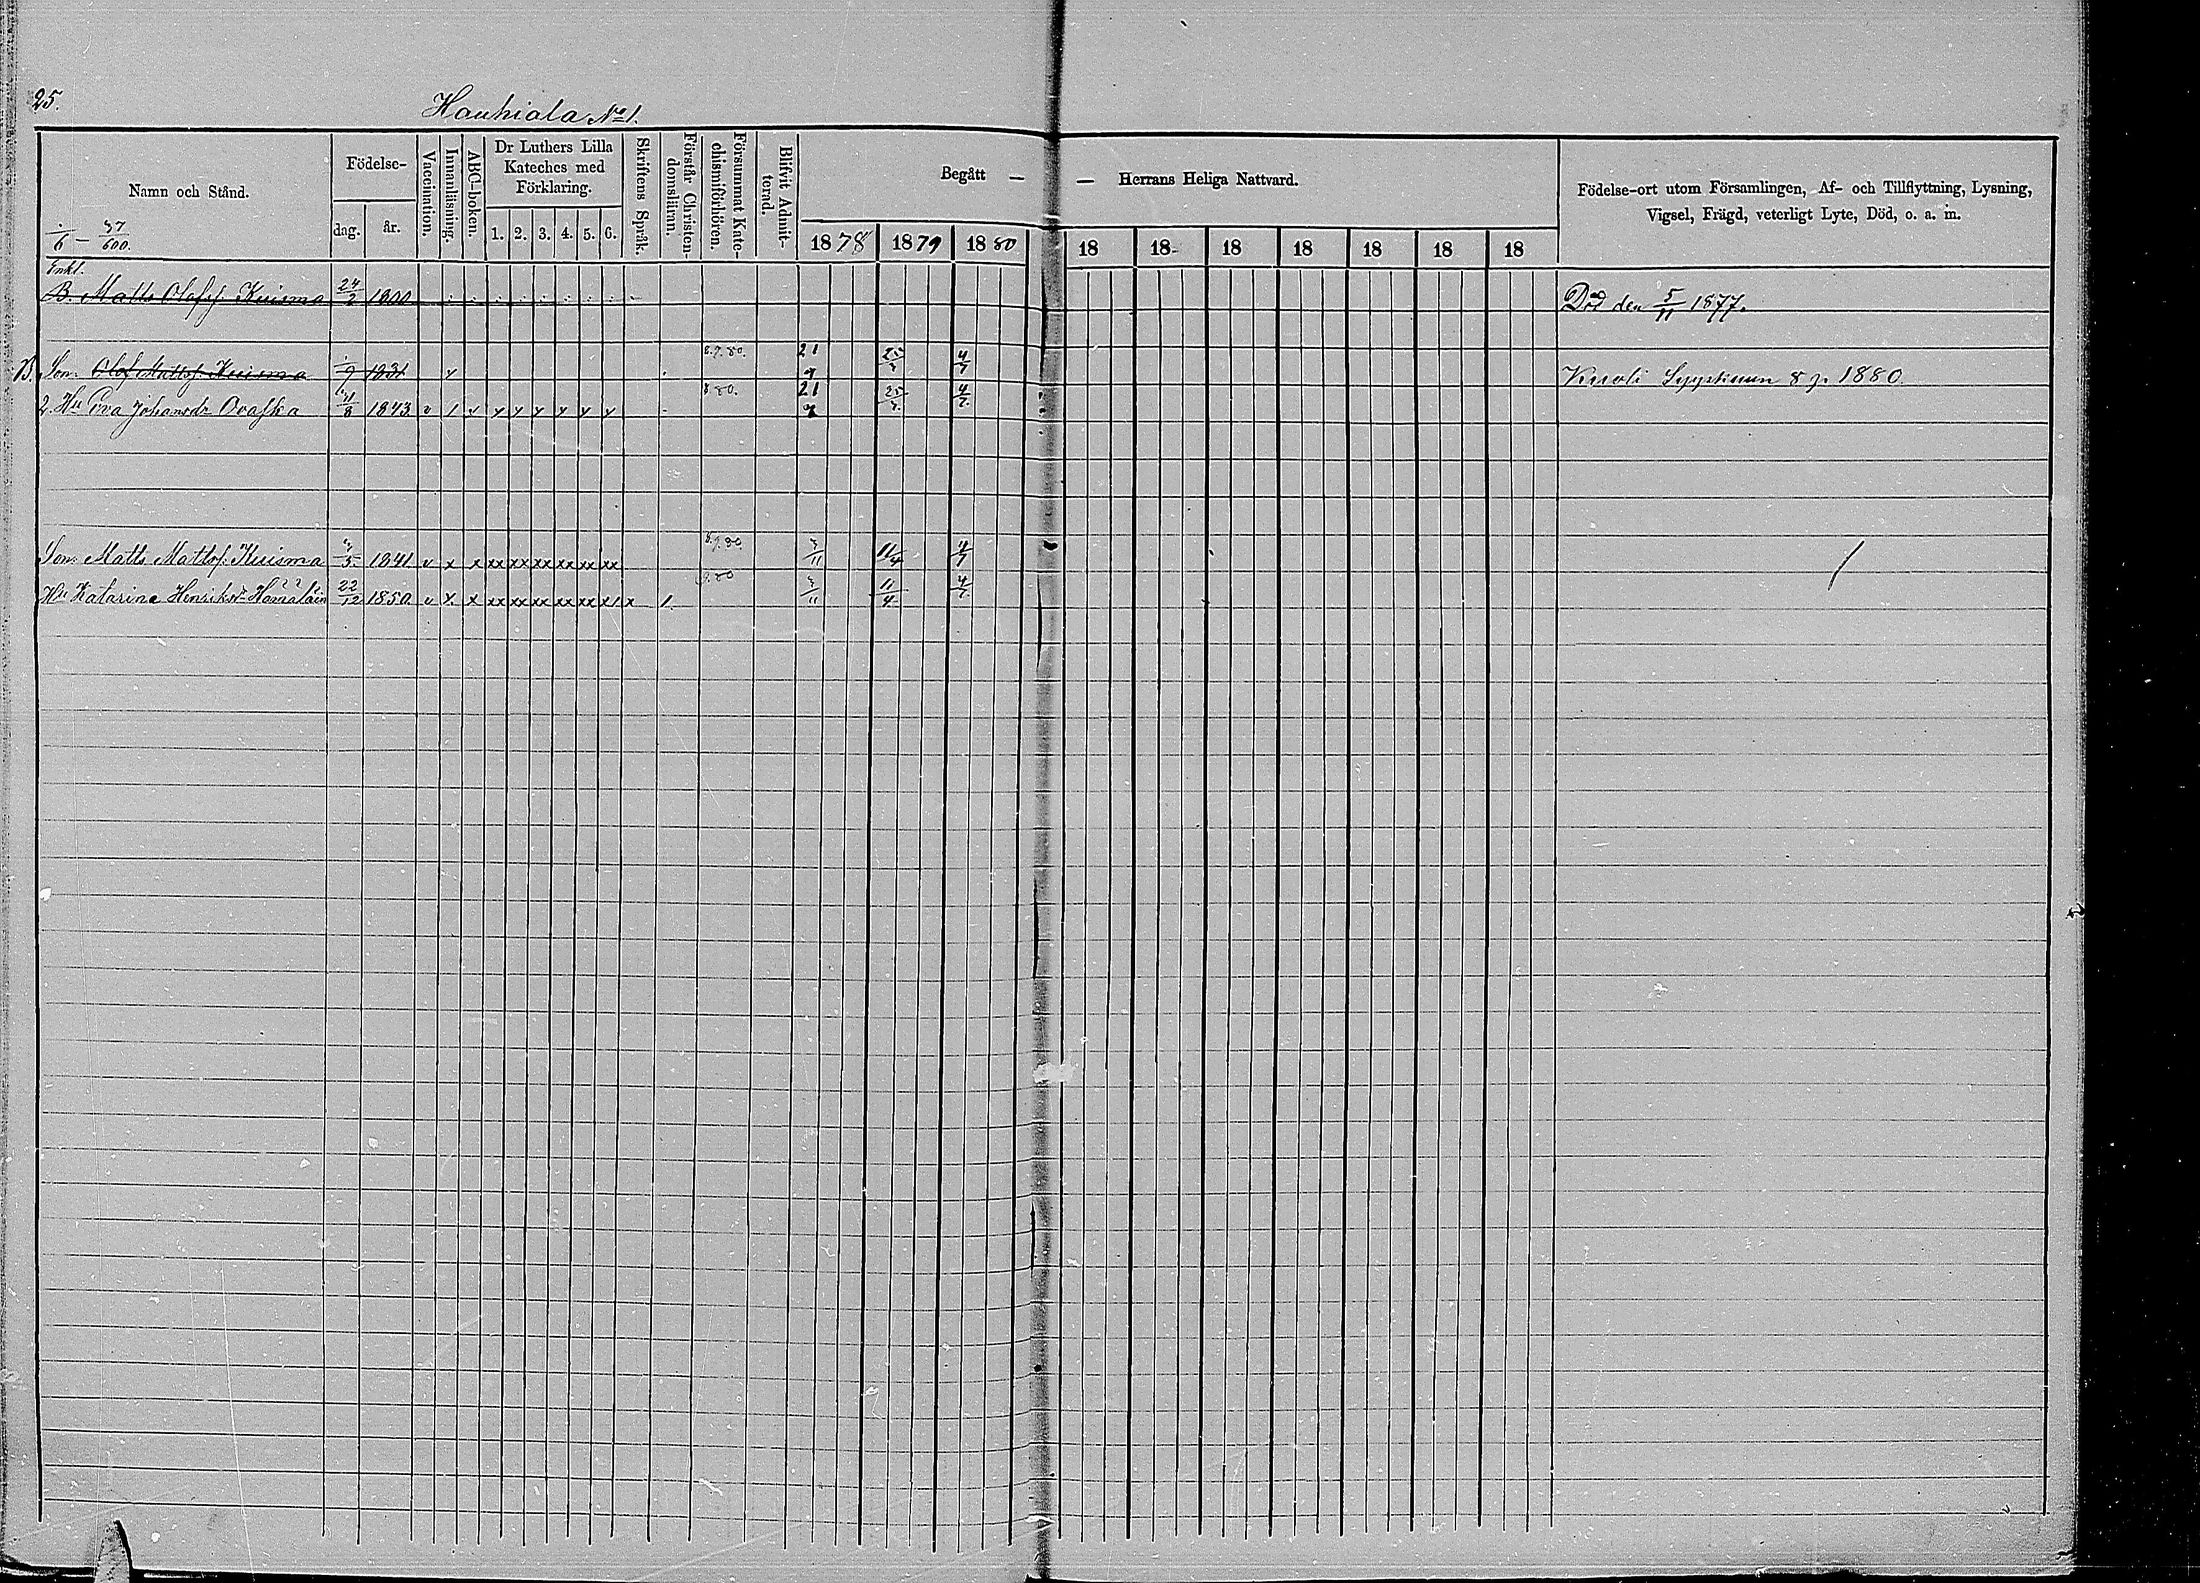 25.
Hauhiala No 1.
Namn och Stånd.
Födelse-
dag.
år.
Vaccination.
Innanläsning.
ABC-boken.
Dr Luthers Lilla Kateches med Förklaring.
1. 2. 3. 4. 5. 6.
Skriftens Språk.
Förstår Christen-domsläran.
Försummat Kate-chismiförhören.
Blifvit Admit-terad.
Begått — — Herrans Heliga Nattvard.
1878 1879 1880 18 18 18 18 18 18 18
Födelse-ort utom Församlingen, Af- och Tillflyttning, Lysning,
Vigsel, Frägd, veterligt Lyte, Död, o. a. m.
37/600.
Enkl.
B. Matts Olofsf. Kuisma 24/2 1800 Död den 5/11 1877.
B. Son. Olof Mattsf. Kuisma 1831 8.9.80. 21/7 25/7 4/7 Kuoli 1880.
2. Hu Eva Johansdr Ovaska 1843 v 80. 21/7 25/7 4/7
Son. Matts Mattsf. Kuisma 1841 v x x xx xx xx xx xx xx 8.9.80. 11/4 4/7
Hu Katarina Henriksdr Hämäläin 22/12 1850 v x x xx xx xx xx xx x1 x 1. 80 11/4 4/7